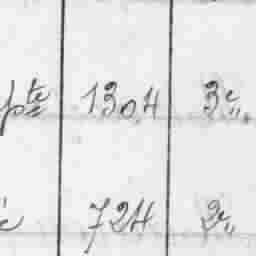 pte 1304 3e,,.
e 724 2e,,